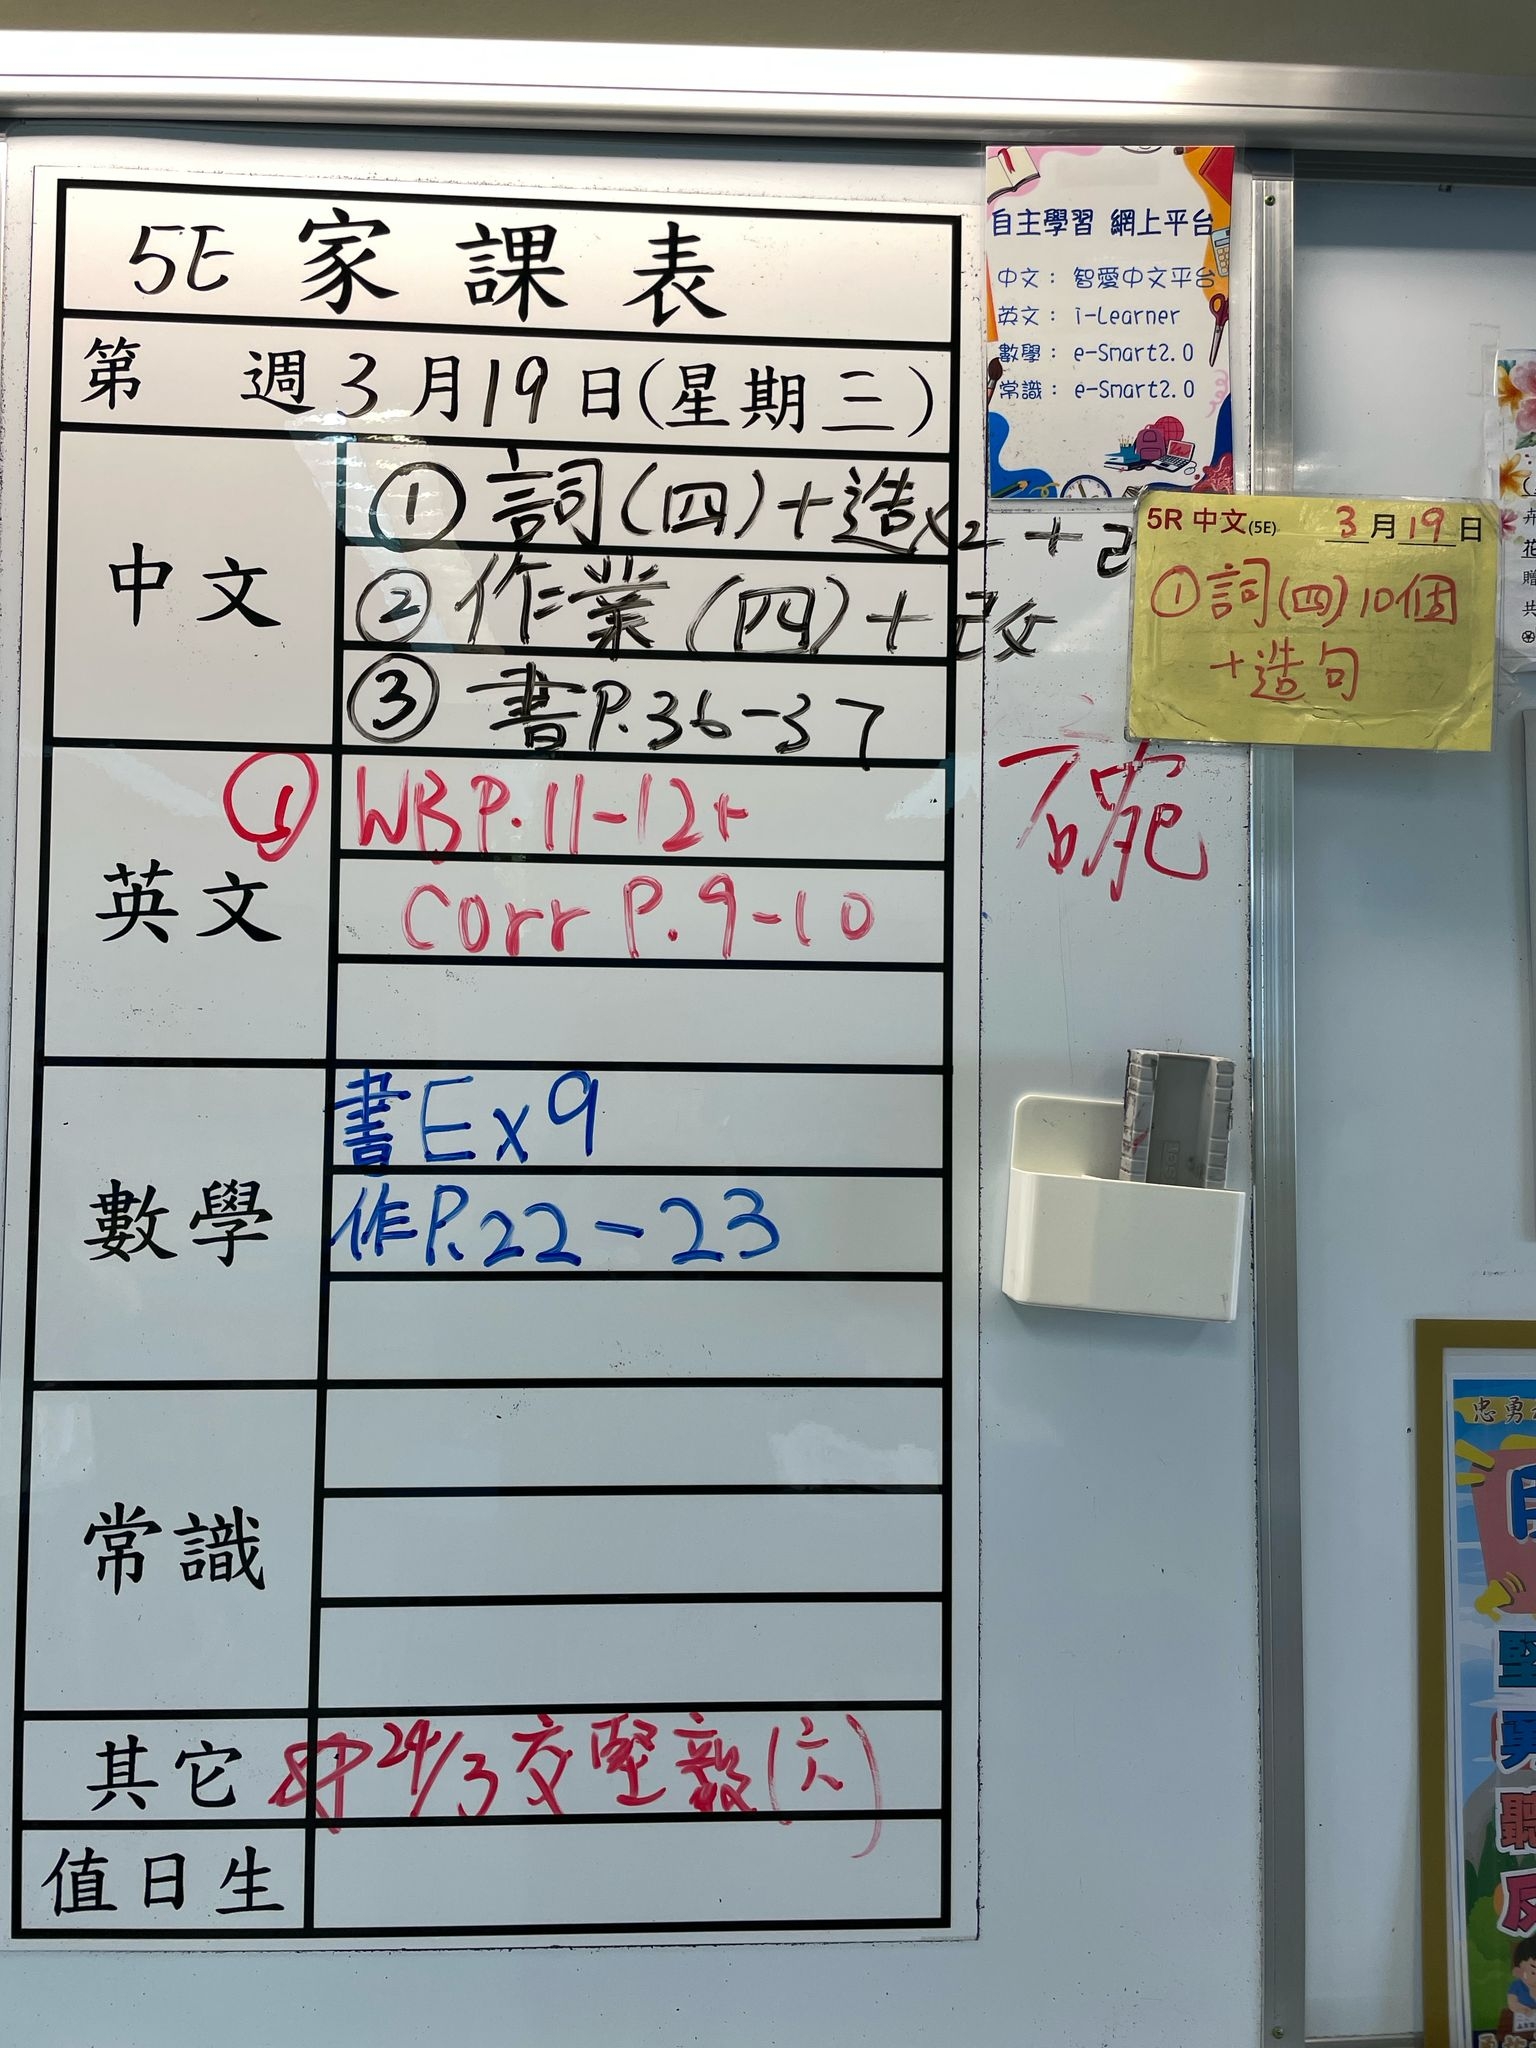 5E 家課表
第 週 3月19日(星期三)
中文
① 詞(四)+造x2+
② 作業(四)+改
③ 書P.36-37
英文
① WB P.11-12+
corr P.9-10
數學
書Ex9
作P.22-23
常識
其它
24/3交堅毅(六)
值日生
自主學習 網上平台
中文：智愛中文平台
英文：i-Learner
數學：e-Smart2.0
常識：e-Smart2.0
5R 中文(5E) 3月19日
①詞(四)10個
+造句
忠勇